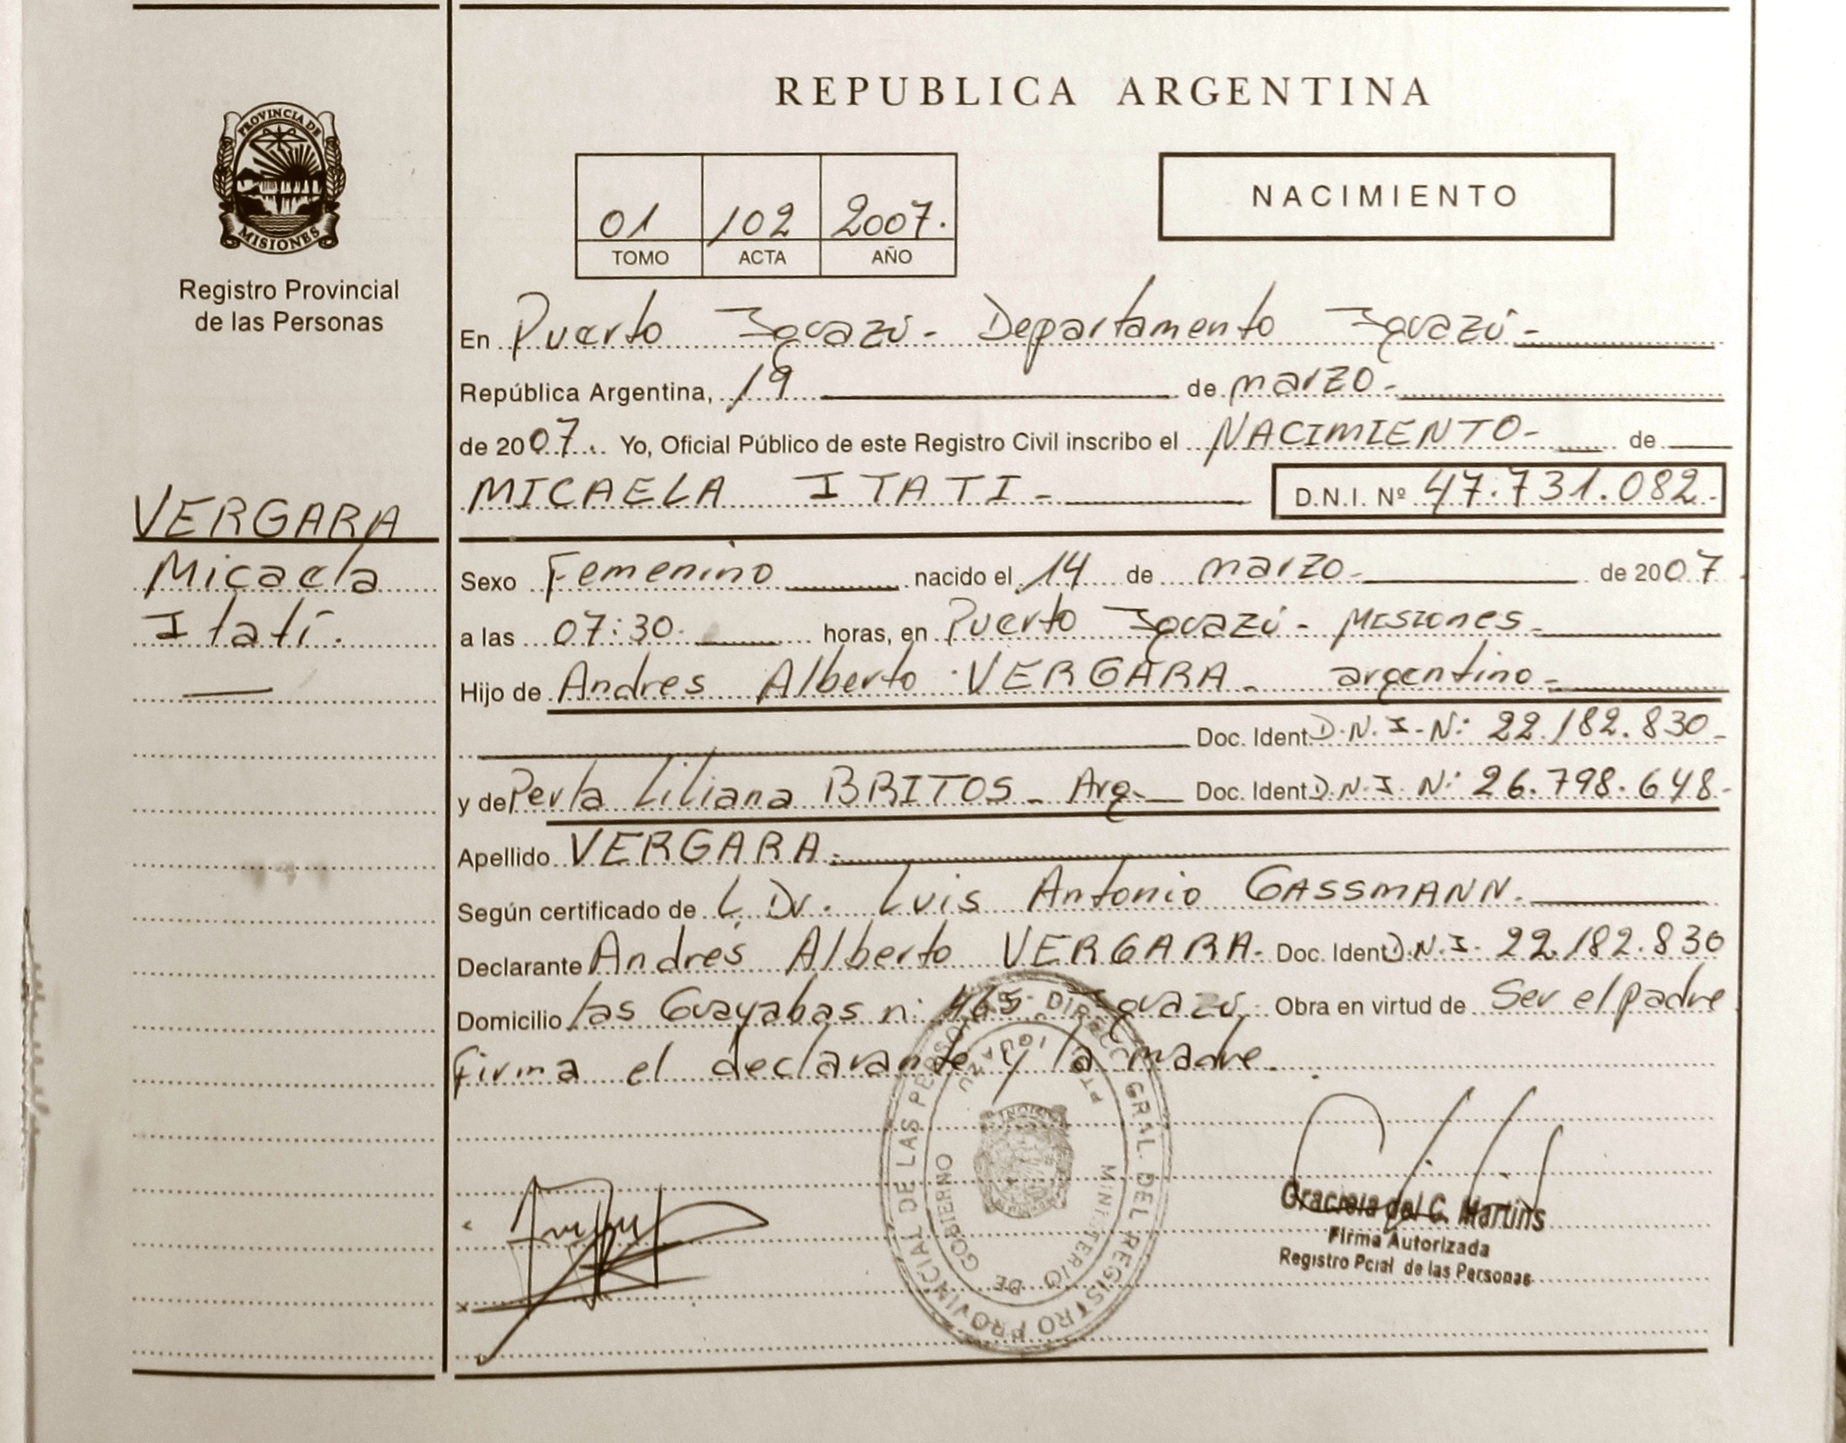 REPUBLICA ARGENTINA
PROVINCIA DE
MISIONES
Registro Provincial
de las Personas
NACIMIENTO
01 102 2007.
TOMO ACTA AÑO
En Puerto Iguazú - Departamento Iguazú -
República Argentina, 19 de marzo -
de 2007. Yo, Oficial Público de este Registro Civil inscribo el NACIMIENTO - de
MICAELA ITATI - D.N.I. Nº 47.731.082.-
VERGARA
Micaela
Itatí.
Sexo Femenino nacido el 14 de marzo - de 2007
a las 07:30 horas, en Puerto Iguazú - Misiones -
Hijo de Andres Alberto VERGARA - argentino -
Doc. Ident. D.N.I. N: 22.182.830 -
y de Perla Liliana BRITOS - Arg. Doc. Ident. D.N.I. N: 26.798.648 -
Apellido VERGARA.
Según certificado de L. Dr. Luis Antonio GASSMANN.
Declarante Andrés Alberto VERGARA - Doc. Ident. D.N.I. 22.182.830
Domicilio las Guayabas n: 465 - Iguazú. Obra en virtud de Ser el padre
firma el declarante y la madre.
DIRECC. GRAL. DEL REGISTRO PROVINCIAL DE LAS PERSONAS
MINISTERIO DE GOBIERNO
PTO. IGUAZU
Graciela del C. Martins
Firma Autorizada
Registro Pcial de las Personas